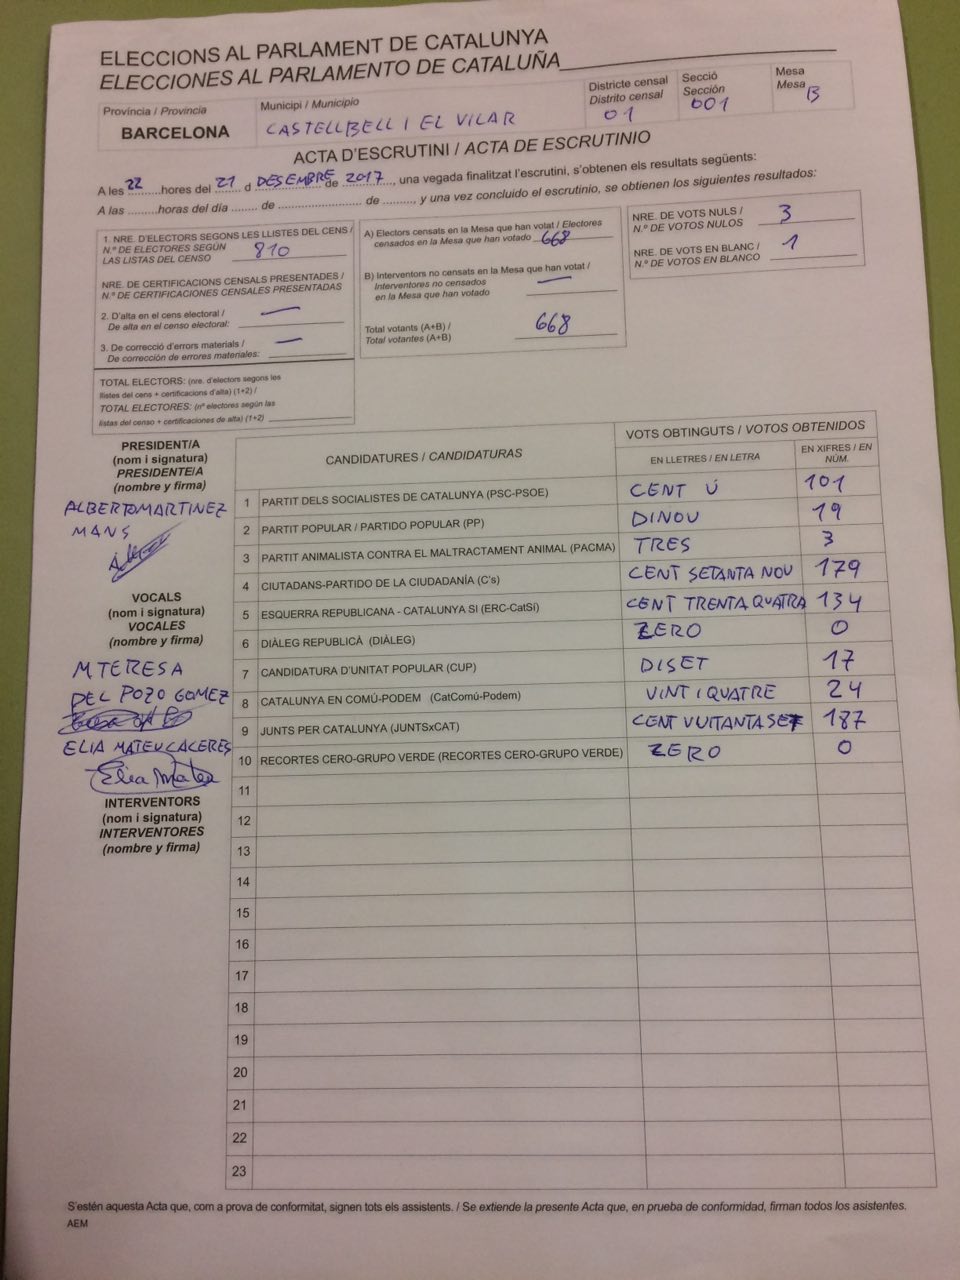 ELECCIONS AL PARLAMENT DE CATALUNYA
ELECCIONES AL PARLAMENTO DE CATALUÑA
Província / Provincia
BARCELONA
Municipi / Municipio
CASTELLBELL I EL VILAR
Districte censal
Distrito censal
01
Secció
Sección
001
Mesa
Mesa B
ACTA D'ESCRUTINI / ACTA DE ESCRUTINIO
A les 22 hores del 21 d DESEMBRE de 2017, una vegada finalitzat l'escrutini, s'obtenen els resultats següents:
A las .........horas del día ........ de ............................ de ........., y una vez concluido el escrutinio, se obtienen los siguientes resultados:
1. NRE. D'ELECTORS SEGONS LES LLISTES DEL CENS /
N.º DE ELECTORES SEGÚN
LAS LISTAS DEL CENSO 810
NRE. DE CERTIFICACIONS CENSALS PRESENTADES /
N.º DE CERTIFICACIONES CENSALES PRESENTADAS
2. D'alta en el cens electoral /
De alta en el censo electoral: —
3. De correcció d'errors materials /
De corrección de errores materiales: —
TOTAL ELECTORS: (nre. d'electors segons les
llistes del cens + certificacions d'alta) (1+2) /
TOTAL ELECTORES: (nº electores según las
listas del censo + certificaciones de alta) (1+2)
A) Electors censats en la Mesa que han votat / Electores
censados en la Mesa que han votado 668
B) Interventors no censats en la Mesa que han votat /
Interventores no censados
en la Mesa que han votado —
Total votants (A+B) /
Total votantes (A+B) 668
NRE. DE VOTS NULS /
N.º DE VOTOS NULOS 3
NRE. DE VOTS EN BLANC /
N.º DE VOTOS EN BLANCO 1
PRESIDENT/A
(nom i signatura)
PRESIDENTE/A
(nombre y firma)
ALBERTO MARTINEZ
MANS
VOCALS
(nom i signatura)
VOCALES
(nombre y firma)
M TERESA
DEL POZO GOMEZ
ELIA MATEU CACERES
Elia Mateu
INTERVENTORS
(nom i signatura)
INTERVENTORES
(nombre y firma)
CANDIDATURES / CANDIDATURAS
VOTS OBTINGUTS / VOTOS OBTENIDOS
EN LLETRES / EN LETRA
EN XIFRES / EN NÚM.
1 PARTIT DELS SOCIALISTES DE CATALUNYA (PSC-PSOE) CENT Ú 101
2 PARTIT POPULAR / PARTIDO POPULAR (PP) DINOU 19
3 PARTIT ANIMALISTA CONTRA EL MALTRACTAMENT ANIMAL (PACMA) TRES 3
4 CIUTADANS-PARTIDO DE LA CIUDADANÍA (C's) CENT SETANTA NOU 179
5 ESQUERRA REPUBLICANA - CATALUNYA SI (ERC-CatSí) CENT TRENTA QUATRA 134
6 DIÀLEG REPUBLICÀ (DIÀLEG) ZERO 0
7 CANDIDATURA D'UNITAT POPULAR (CUP) DISET 17
8 CATALUNYA EN COMÚ-PODEM (CatComú-Podem) VINT I QUATRE 24
9 JUNTS PER CATALUNYA (JUNTSxCAT) CENT VUITANTA SET 187
10 RECORTES CERO-GRUPO VERDE (RECORTES CERO-GRUPO VERDE) ZERO 0
11
12
13
14
15
16
17
18
19
20
21
22
23
S'estén aquesta Acta que, com a prova de conformitat, signen tots els assistents. / Se extiende la presente Acta que, en prueba de conformidad, firman todos los asistentes.
AEM